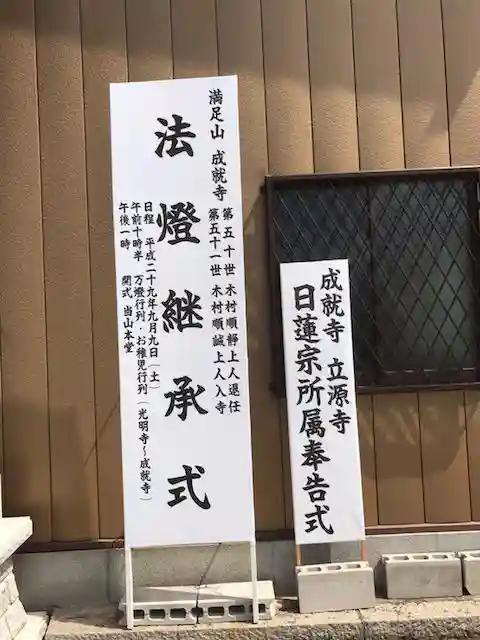 満足山 成就寺
第五十世 木村順靜上人退任
第五十一世 木村順誠上人入寺
法燈継承式
日程 平成二十九年九月九日(土)
午前十時半 万燈行列・お稚児行列(光明寺~成就寺)
午後一時 開式 当山本堂
成就寺 立源寺
日蓮宗所属奉告式